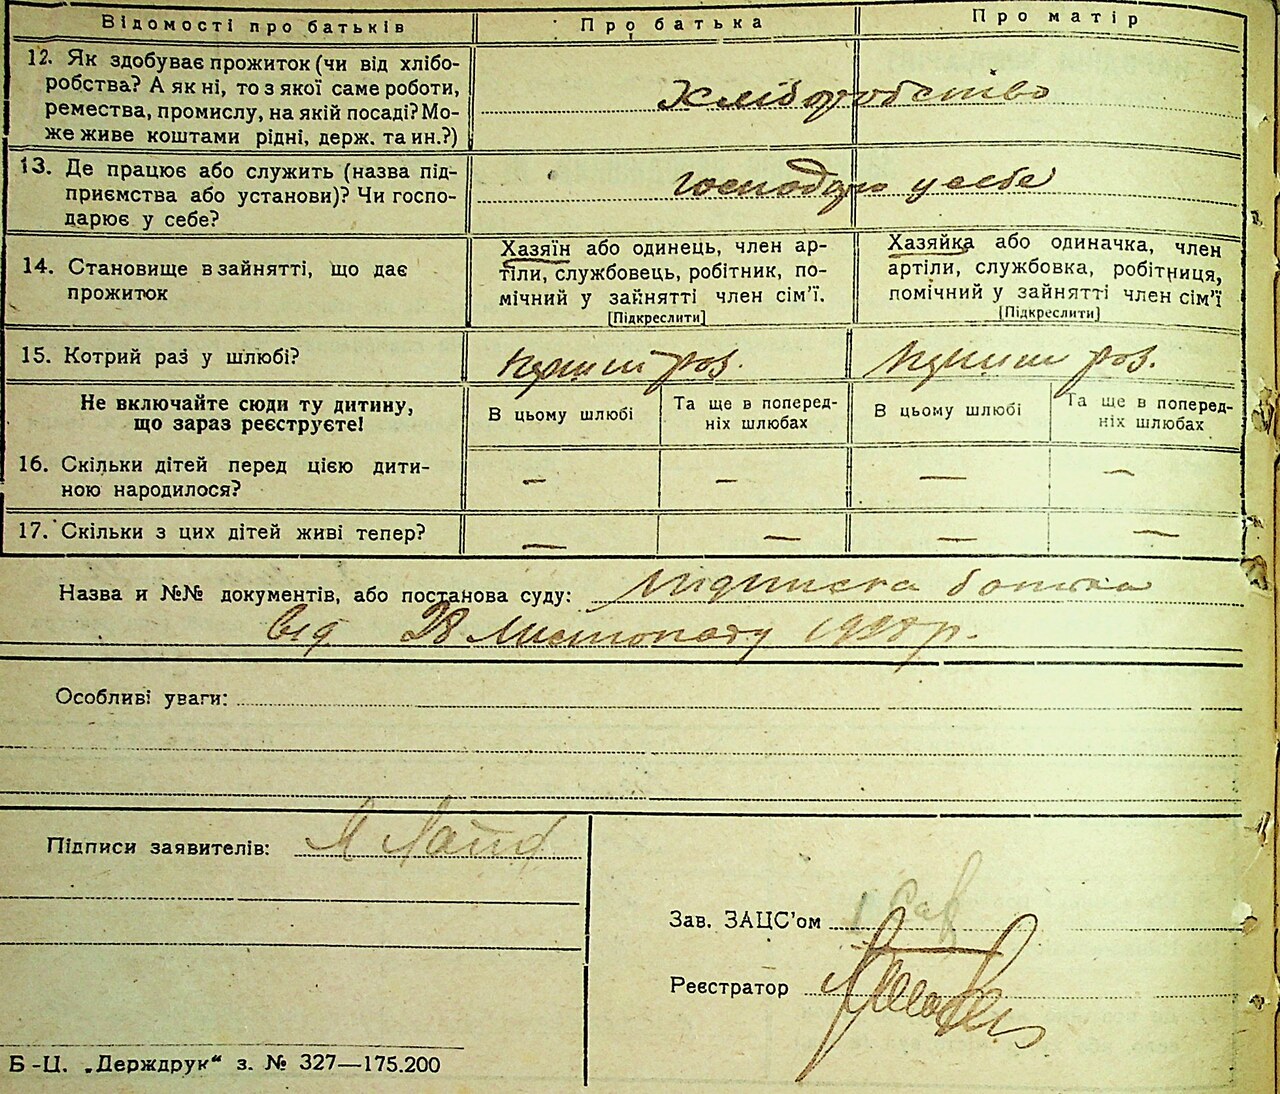 Відомості про батьків
Про батька
Про матір
12. Як здобуває прожиток (чи від хлібо-
робства? А як ні, то з якої саме роботи,
ремества, промислу, на якій посаді? Мо-
же живе коштами рідні, держ. та ин.?)
Хліборобство
13. Де працює або служить (назва під-
приємства або установи)? Чи госпо-
дарює у себе?
господарю у себе
14. Становище в зайнятті, що дає
прожиток
Хазяїн або одинець, член ар-
тіли, службовець, робітник, по-
мічний у зайнятті член сім'ї.
[Підкреслити]
Хазяйка або одиначка, член
артіли, службовка, робітниця,
помічний у зайнятті член сім'ї
[Підкреслити]
15. Котрий раз у шлюбі?
перший раз.
перший раз.
Не включайте сюди ту дитину,
що зараз реєструєте!
В цьому шлюбі
Та ще в поперед-
ніх шлюбах
В цьому шлюбі
Та ще в поперед-
ніх шлюбах
16. Скільки дітей перед цією дити-
ною народилося?
— — — —
17. Скільки з цих дітей живі тепер?
— — — —
Назва и №№ документів, або постанова суду: підписка батька
від 28 Листопаду р.
Особливі уваги:
Підписи заявителів:
Зав. ЗАЦС'ом
Реєстратор
Б-Ц. „Держдрук“ з. № 327—175.200